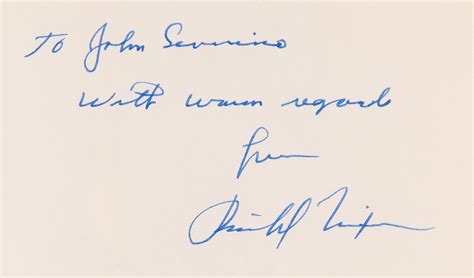 To John Severino
With warm regards
from
Richard Nixon